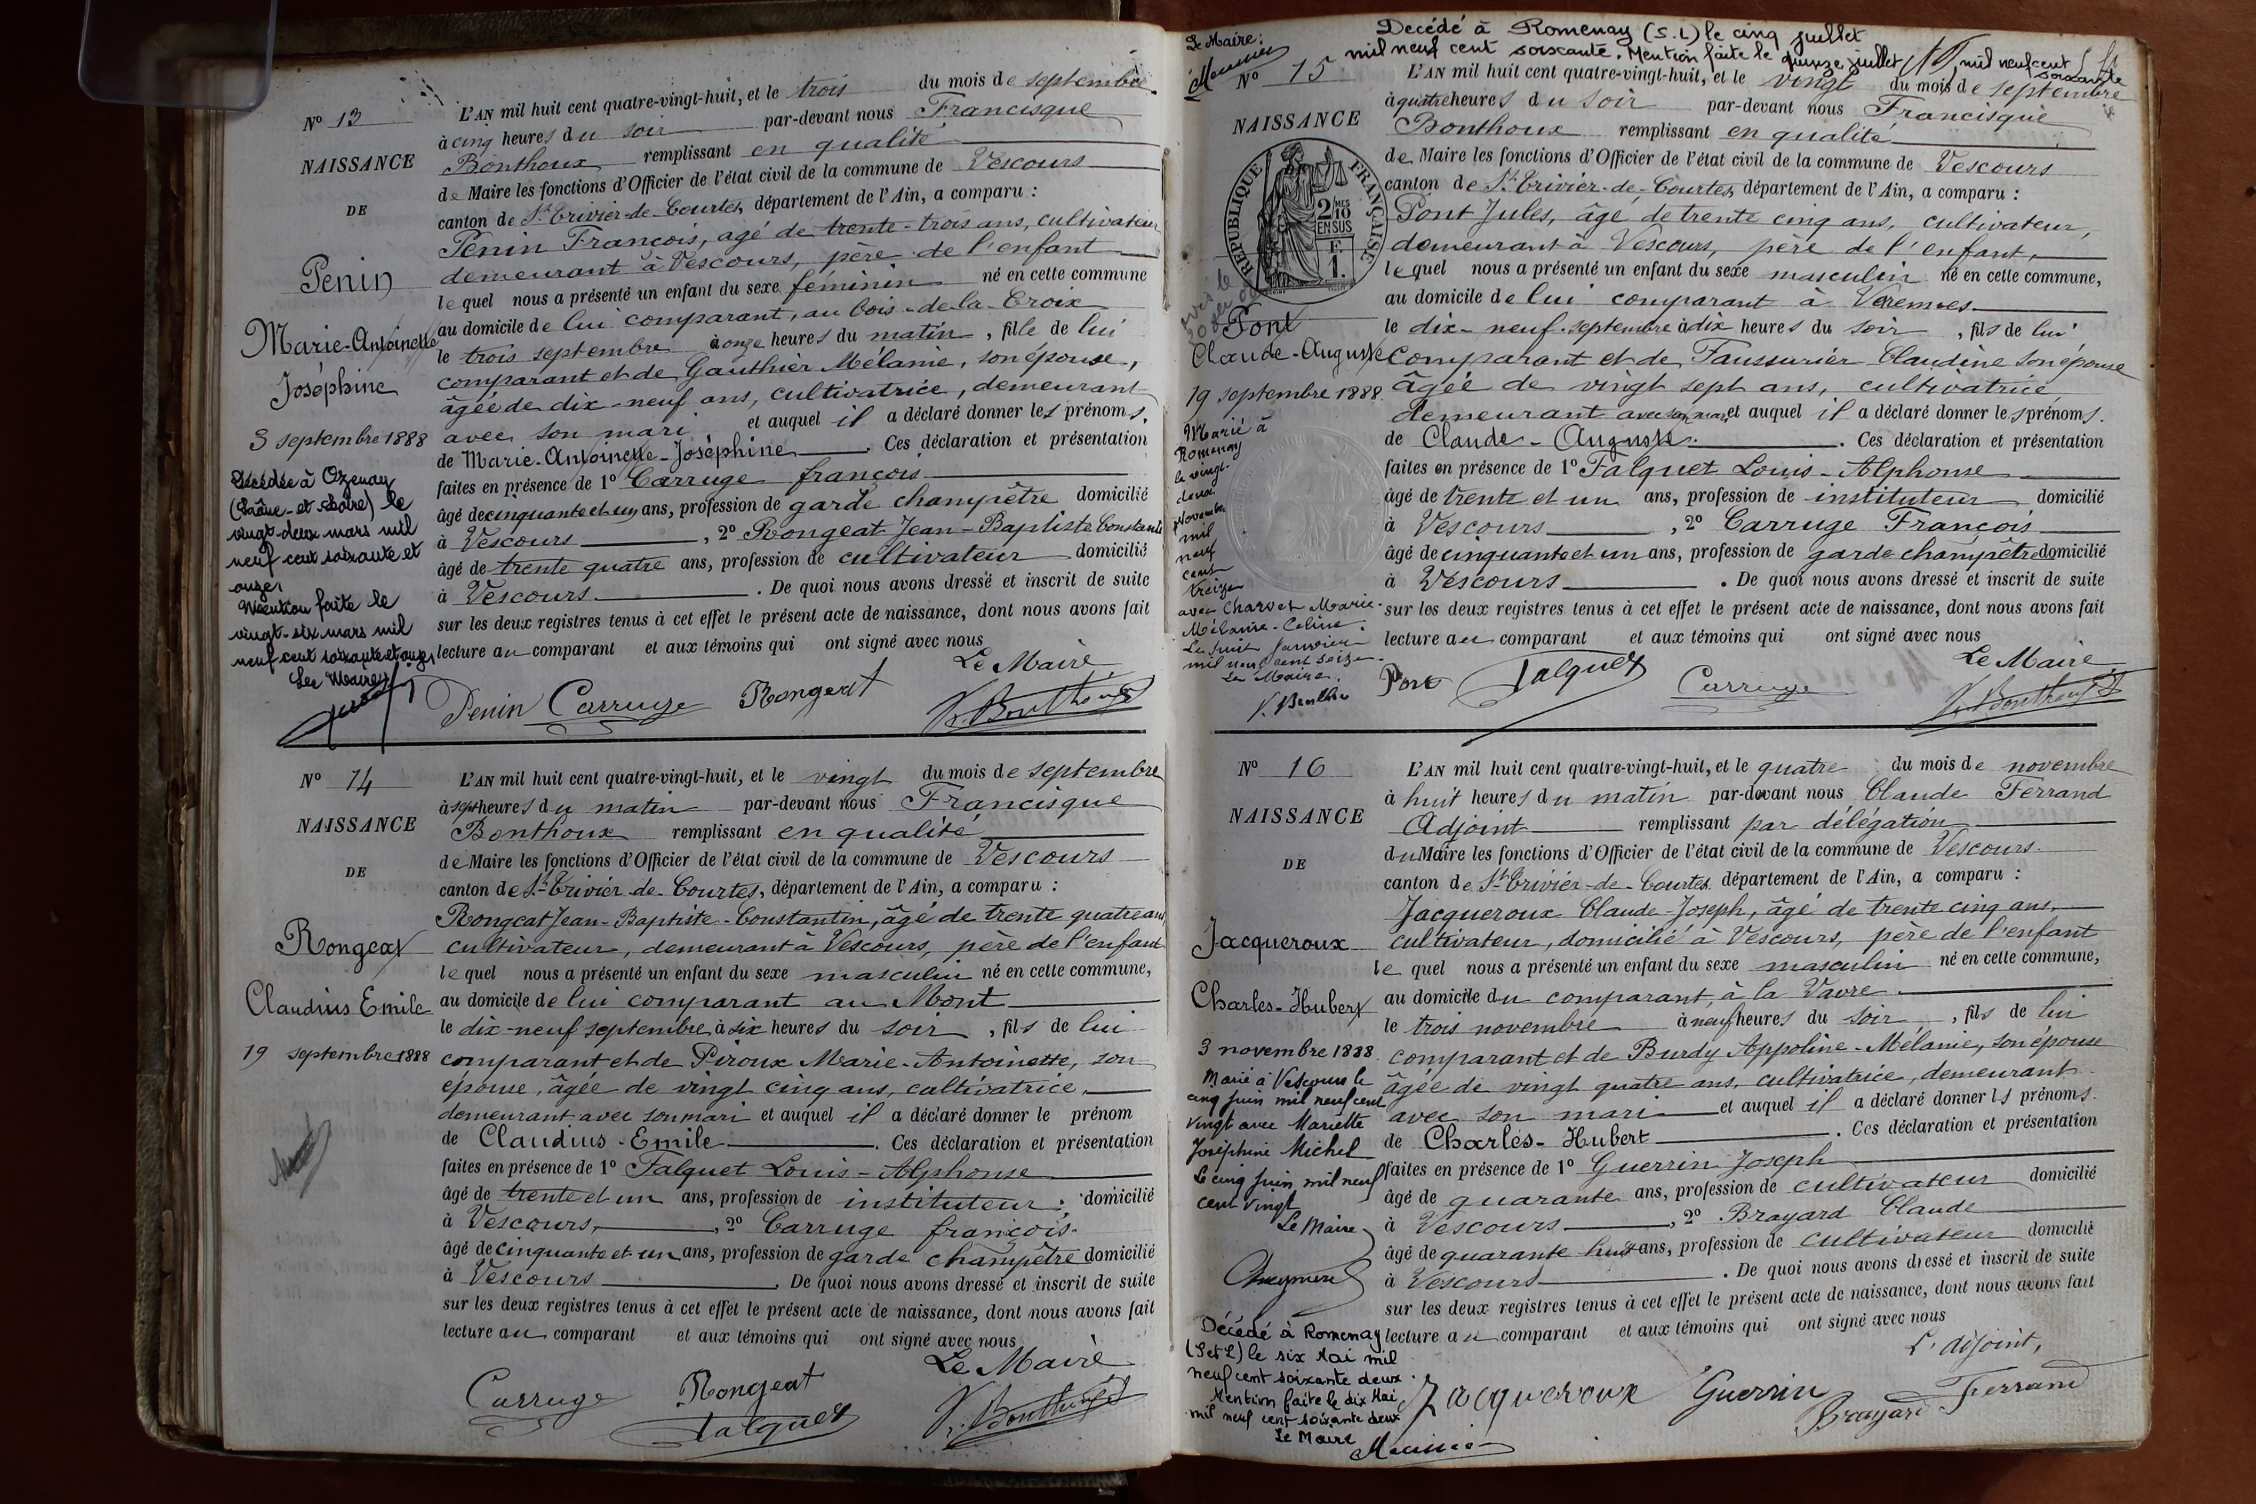 Nº 13
NAISSANCE
DE
Penin
Marie-Antoinette
Joséphine
3 septembre 1888
Décédée à Ozenay
(Saône-et-Loire) le
vingt-deux mars mil
neuf cent soixante et
onze.
Mention faite le
vingt-six mars mil
neuf cent soixante et onze
Le Maire
L'AN mil huit cent quatre-vingt-huit, et le trois du mois de septembre
à cinq heures du soir par-devant nous Francisque
Bonthoux remplissant en qualité
de Maire les fonctions d'Officier de l'état civil de la commune de Vescours
canton de St Trivier-de-Courtes, département de l'Ain, a comparu :
Penin François, agé de trente-trois ans, cultivateur
demeurant à Vescours, père de l'enfant
lequel nous a présenté un enfant du sexe féminin né en cette commune
au domicile de lui comparant, au bois-de-la-Croix
le trois septembre à onze heures du matin, fille de lui
comparant et de Gauthier Mélanie, son épouse,
âgée de dix-neuf ans, cultivatrice, demeurant
avec son mari et auquel il a déclaré donner les prénoms
de Marie-Antoinette-Joséphine. Ces déclaration et présentation
faites en présence de 1º Carruge françois
âgé de cinquante et un ans, profession de garde champêtre domicilié
à Vescours, 2º Rongeat Jean-Baptiste Constantin
âgé de trente quatre ans, profession de cultivateur domicilié
à Vescours. De quoi nous avons dressé et inscrit de suite
sur les deux registres tenus à cet effet le présent acte de naissance, dont nous avons fait
lecture au comparant et aux témoins qui ont signé avec nous
Le Maire
Penin Carruge Rongeat F. Bonthoux
Nº 14
NAISSANCE
DE
Rongeat
Claudius Emile
19 septembre 1888
L'AN mil huit cent quatre-vingt-huit, et le vingt du mois de septembre
à sept heures du matin par-devant nous Francisque
Bonthoux remplissant en qualité
de Maire les fonctions d'Officier de l'état civil de la commune de Vescours
canton de St-Trivier-de-Courtes, département de l'Ain, a comparu :
Rongeat Jean-Baptiste-Constantin, âgé de trente quatre ans
cultivateur, demeurant à Vescours, père de l'enfant
lequel nous a présenté un enfant du sexe masculin né en cette commune,
au domicile de lui comparant au Mont
le dix-neuf septembre à six heures du soir, fils de lui
comparant et de Piroux Marie-Antoinette, son
épouse, âgée de vingt cinq ans, cultivatrice,
demeurant avec son mari et auquel il a déclaré donner le prénom
de Claudius-Emile. Ces déclaration et présentation
faites en présence de 1º Falquet Louis-Alphonse
âgé de trente et un ans, profession de instituteur, domicilié
à Vescours, 2º Carruge françois.
âgé de cinquante et un ans, profession de garde champêtre domicilié
à Vescours. De quoi nous avons dressé et inscrit de suite
sur les deux registres tenus à cet effet le présent acte de naissance, dont nous avons fait
lecture au comparant et aux témoins qui ont signé avec nous
Le Maire
Carruge Rongeat
Falquet F. Bonthoux
Decédé à Romenay (S.L) le cinq juillet
mil neuf cent soixante. Mention faite le quinze juillet mil neuf cent
soixante
Le Maire:
Meunier
Nº 15
NAISSANCE
RÉPUBLIQUE FRANÇAISE
2/10 MES
EN SUS
F.
1.
Pont
Claude-Auguste
19 septembre 1888
Marié à
Romenay
le vingt-
deux
Novembre
mil
neuf
cent
treize
avec Charvet Marie-
Mélanie-Celine.
Le huit Janvier
mil neuf cent seize.
Le Maire.
L'AN mil huit cent quatre-vingt-huit, et le vingt du mois de septembre
à quatre heures du soir par-devant nous Francisque
Bonthoux remplissant en qualité
de Maire les fonctions d'Officier de l'état civil de la commune de Vescours
canton de St Trivier-de-Courtes, département de l'Ain, a comparu :
Pont Jules, âgé de trente cinq ans, cultivateur,
demeurant à Vescours, père de l'enfant,
lequel nous a présenté un enfant du sexe masculin né en cette commune,
au domicile de lui comparant à Veremes
le dix-neuf septembre à dix heures du soir, fils de lui
comparant et de Faussurier Claudine son épouse
âgée de vingt sept ans, cultivatrice
demeurant avec son mari et auquel il a déclaré donner les prénoms.
de Claude-Auguste. Ces déclaration et présentation
faites en présence de 1º Falquet Louis-Alphonse
âgé de trente et un ans, profession de instituteur domicilié
à Vescours, 2º Carruge François
âgé de cinquante et un ans, profession de garde champêtre domicilié
à Vescours. De quoi nous avons dressé et inscrit de suite
sur les deux registres tenus à cet effet le présent acte de naissance, dont nous avons fait
lecture au comparant et aux témoins qui ont signé avec nous
Le Maire
Pont Falquet Carruge F. Bonthoux
Nº 16
NAISSANCE
DE
Jacqueroux
Charles-Hubert
3 novembre 1888
Marié à Vescours le
cinq juin mil neuf cent
vingt avec Mariette
Joséphine Michel
Le cinq juin mil neuf
cent vingt
Le Maire
Décédé à Romenay
(S et L) le six Mai mil
neuf cent soixante deux.
Mention faite le dix Mai
mil neuf cent soixante deux
Le Maire
Meunier
L'AN mil huit cent quatre-vingt-huit, et le quatre du mois de novembre
à huit heures du matin par-devant nous Claude Ferrand
Adjoint remplissant par délégation
du Maire les fonctions d'Officier de l'état civil de la commune de Vescours.
canton de St Trivier-de-Courtes département de l'Ain, a comparu :
Jacqueroux Claude-Joseph, âgé de trente cinq ans,
cultivateur, domicilié à Vescours, père de l'enfant
le quel nous a présenté un enfant du sexe masculin né en cette commune,
au domicile du comparant, à la Vavre
le trois novembre à neuf heures du soir, fils de lui
comparant et de Burdy Appoline-Mélanie, son épouse
âgée de vingt quatre ans, cultivatrice, demeurant
avec son mari et auquel il a déclaré donner ls prénoms.
de Charles-Hubert. Ces déclaration et présentation
faites en présence de 1º Guerrin Joseph
âgé de quarante ans, profession de cultivateur domicilié
à Vescours, 2º Brayard Claude
âgé de quarante huit ans, profession de cultivateur domicilié
à Vescours. De quoi nous avons dressé et inscrit de suite
sur les deux registres tenus à cet effet le présent acte de naissance, dont nous avons fait
lecture au comparant et aux témoins qui ont signé avec nous
L'adjoint,
Jacqueroux Guerrin Brayard Ferrand